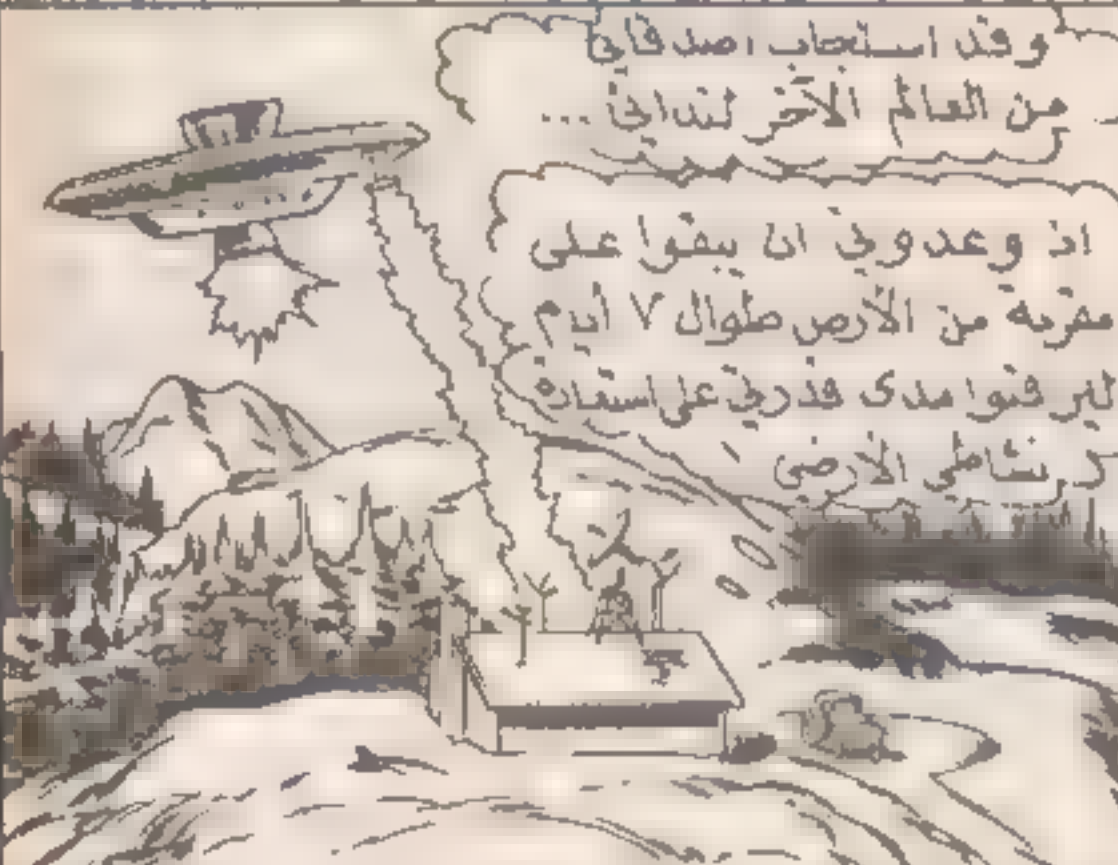 وقد استجاب اصدقائي
من العالم الآخر لندائي ...
اذ وعدوني ان يبقوا على
مقربة من الأرض طوال ٧ أيام
ليرقبوا مدى قدرتي على استعادة
نشاطي الارضي